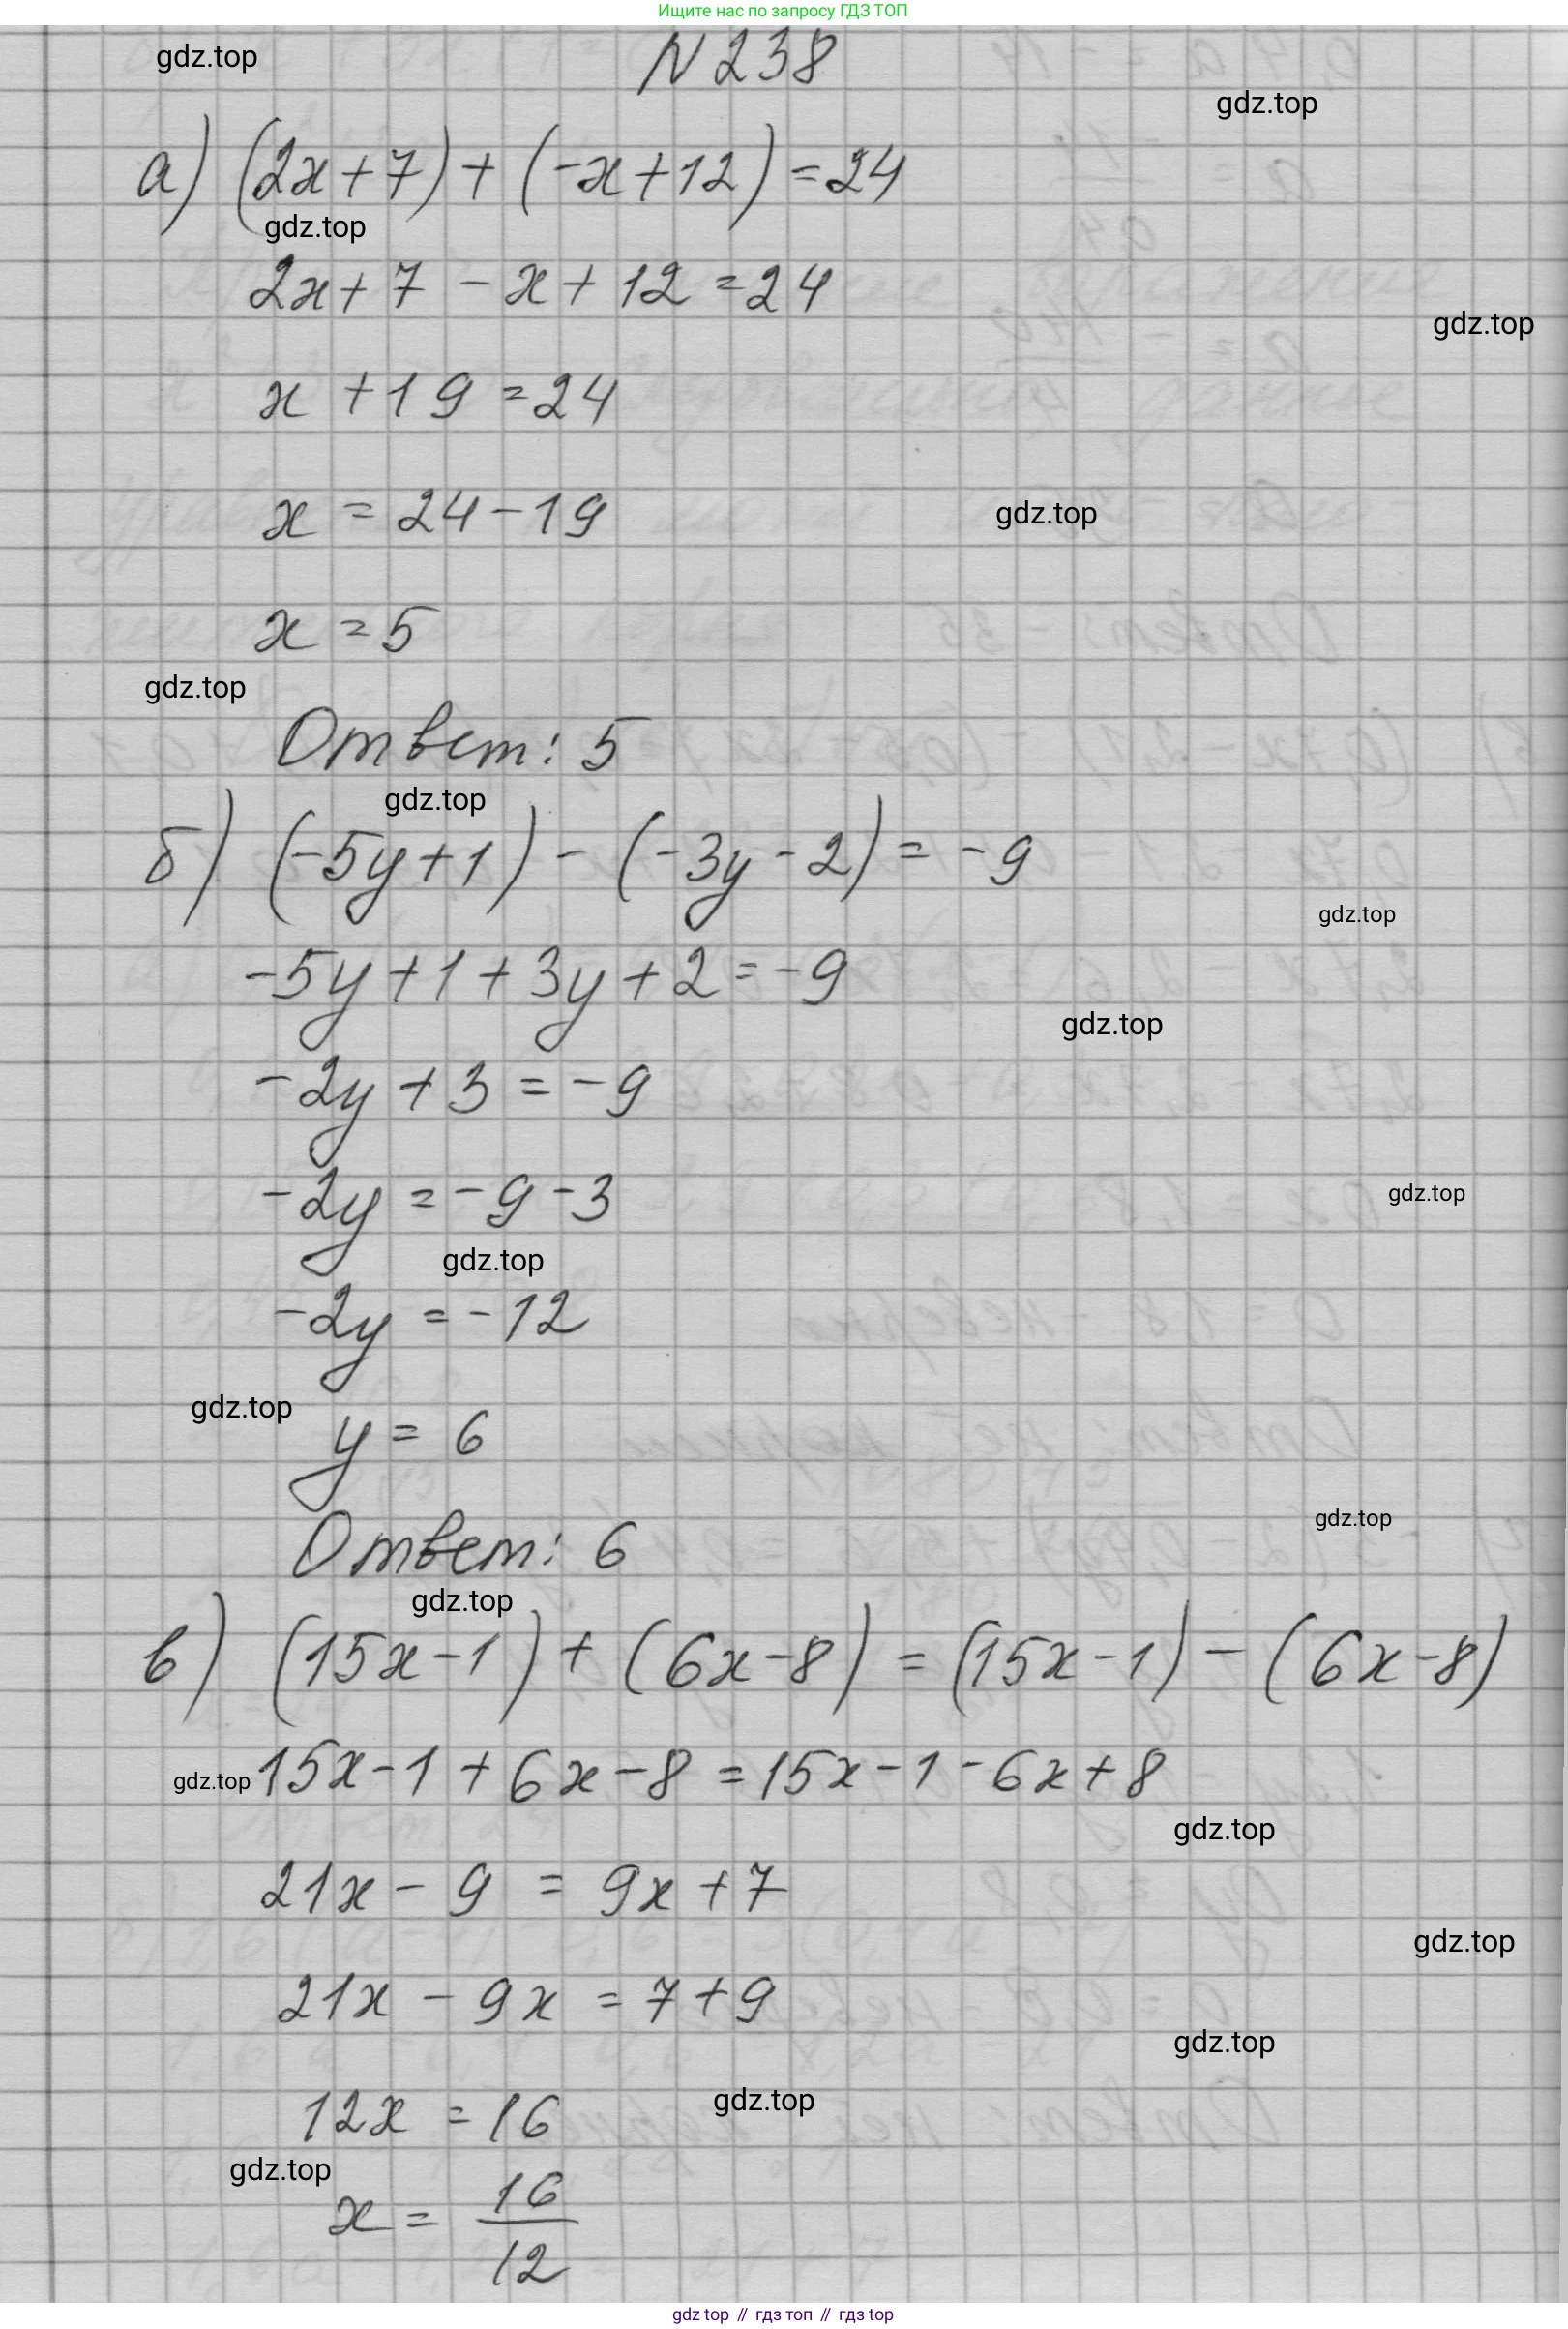 Ищите нас по запросу ГДЗ ТОП
gdz.top
N 238
gdz.top
а) (2x+7)+(-x+12)=24
gdz.top
2x+7-x+12=24
gdz.top
x+19=24
x=24-19
gdz.top
x=5
gdz.top
Ответ: 5
gdz.top
б) (-5y+1)-(-3y-2)=-9
gdz.top
-5y+1+3y+2=-9
gdz.top
-2y+3=-9
-2y=-9-3
gdz.top
gdz.top
-2y=-12
gdz.top
y=6
gdz.top
Ответ: 6
gdz.top
в) (15x-1)+(6x-8)=(15x-1)-(6x-8)
gdz.top 15x-1+6x-8=15x-1-6x+8
gdz.top
21x-9=9x+7
gdz.top
21x-9x=7+9
gdz.top
12x=16
gdz.top
gdz.top
x=16/12
gdz top // гдз топ // гдз top